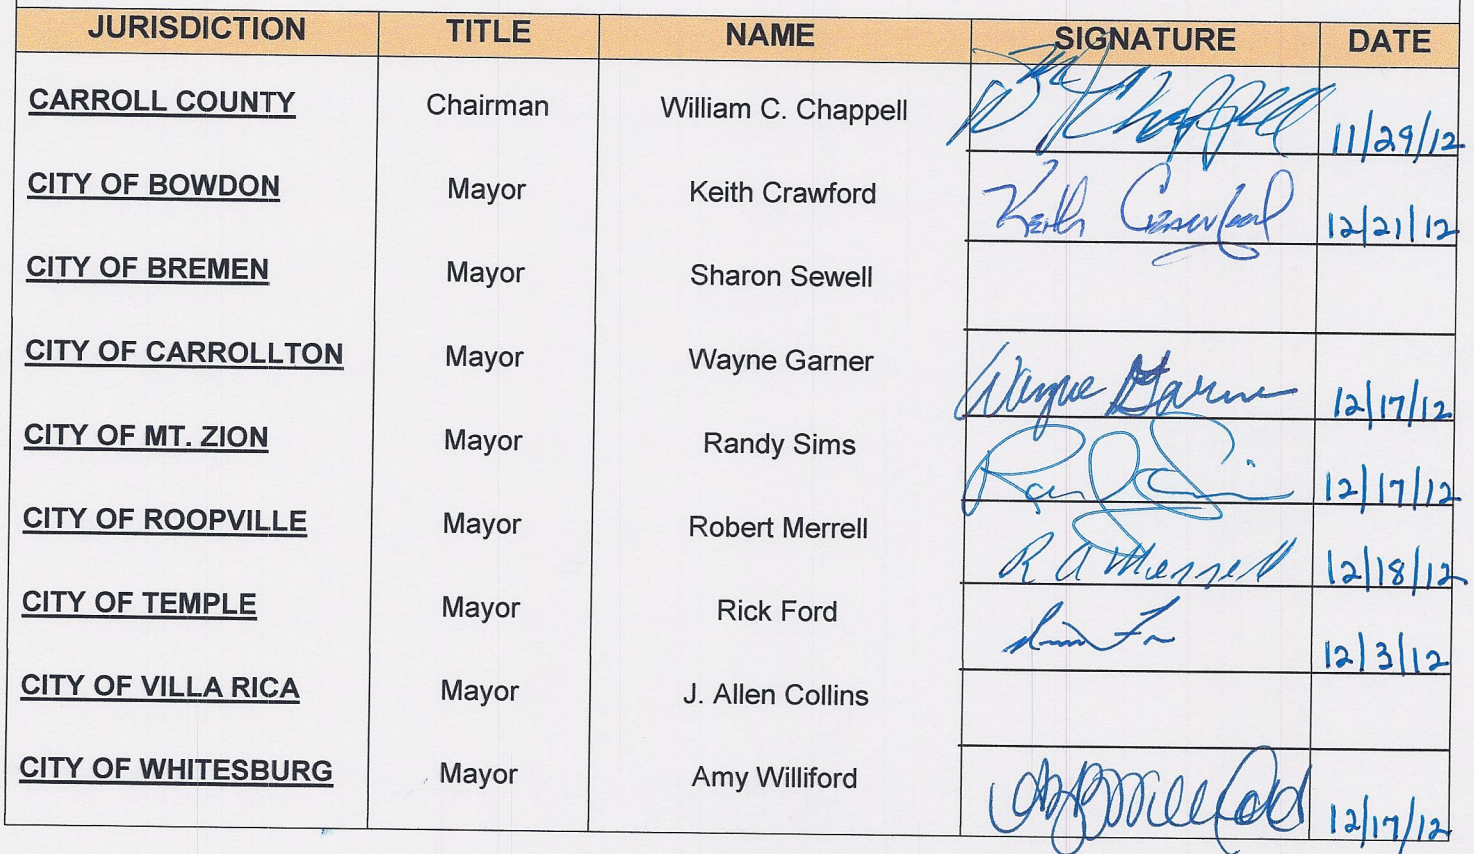 JURISDICTION TITLE NAME SIGNATURE DATE
CARROLL COUNTY Chairman William C. Chappell Bill Chappell 11/29/12
CITY OF BOWDON Mayor Keith Crawford Keith Crawford 12/21/12
CITY OF BREMEN Mayor Sharon Sewell
CITY OF CARROLLTON Mayor Wayne Garner Wayne Garner 12/17/12
CITY OF MT. ZION Mayor Randy Sims 12/17/12
CITY OF ROOPVILLE Mayor Robert Merrell R A Merrell 12/18/12
CITY OF TEMPLE Mayor Rick Ford 12/3/12
CITY OF VILLA RICA Mayor J. Allen Collins
CITY OF WHITESBURG Mayor Amy Williford 12/17/12